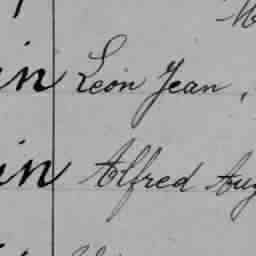 in Léon Jean,
in Alfred Aug